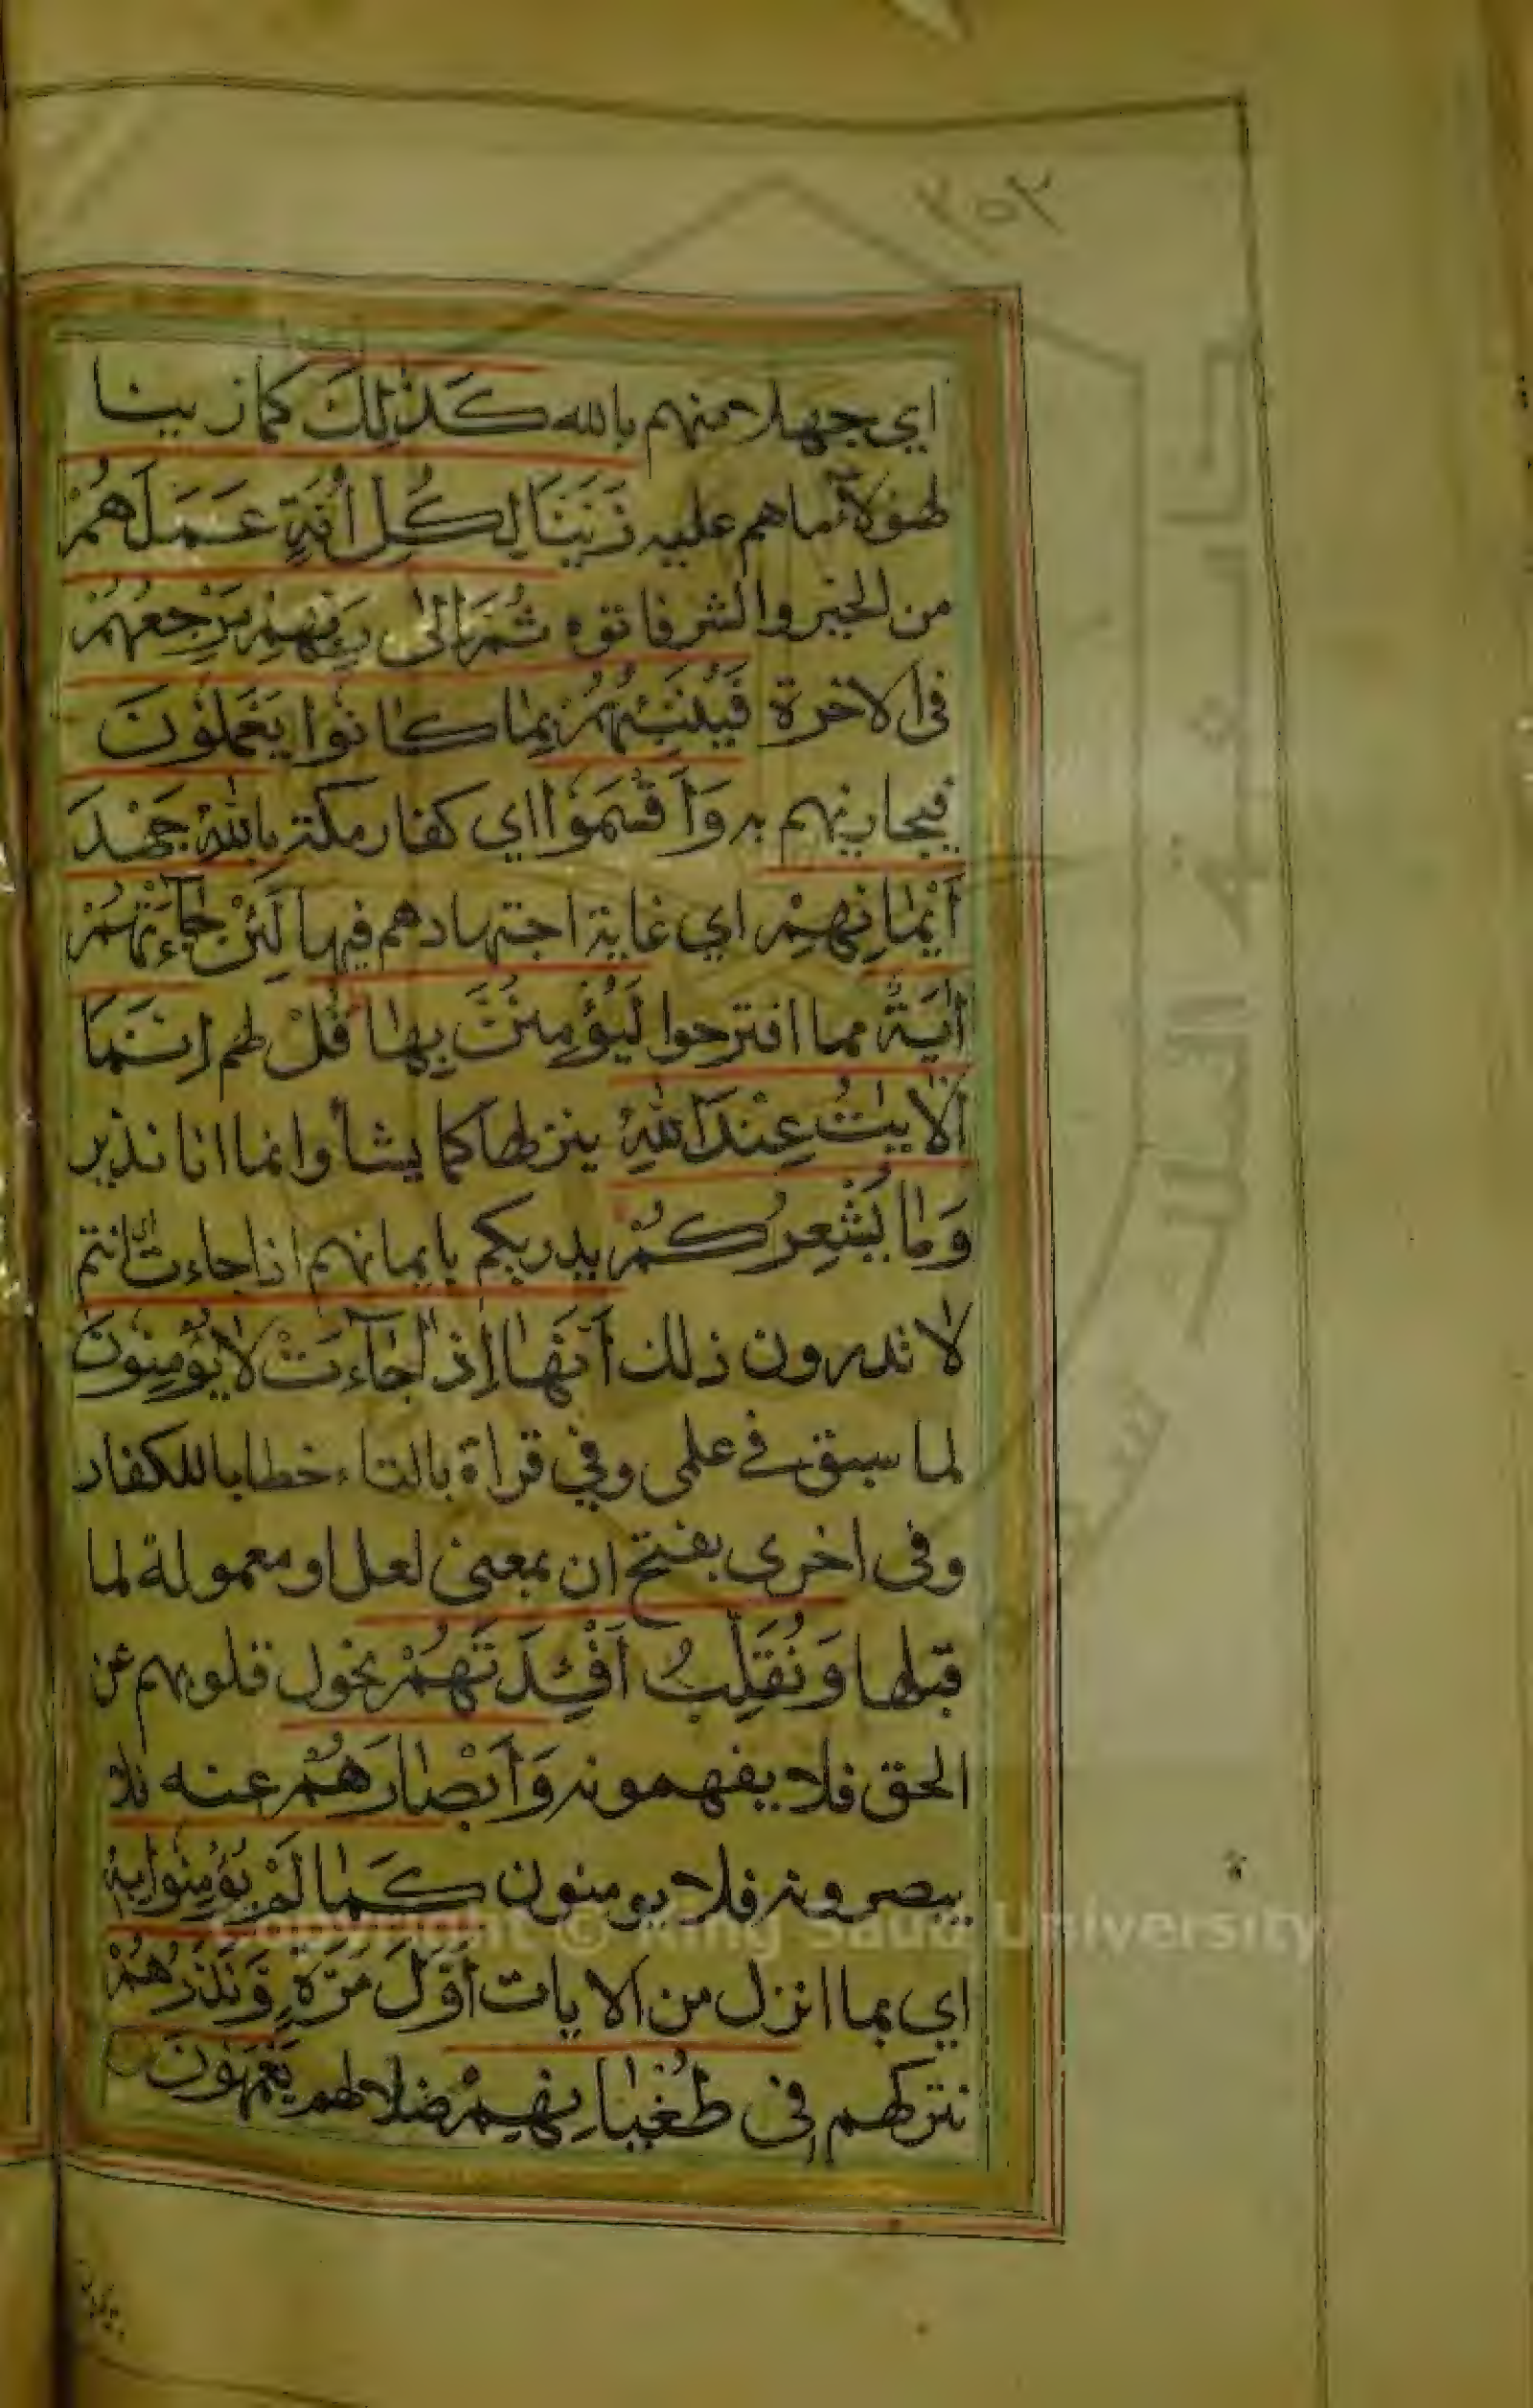 ٢٥٢
اي جهلا منهم بالله كَذٰلِكَ كما زينا
لهؤلاء ما هم عليه زَيَّنَا لِكُلِّ اُمَّةٍ عَمَلَهُمْ
من الخير والشر فاتوه ثُمَّ اِلٰى رَبِّهِمْ مَرْجِعُهُمْ
فى الاخرة فَيُنَبِّئُهُمْ بِمٰا كٰانُوا يَعْمَلُوْنَ
فيجازيهم به وَاَقْسَمُوْا اي كفار مكة بِاللّٰهِ جَهْدَ
اَيْمٰانِهِمْ اي غاية اجتهادهم فيها لَئِنْ جٰٓاءَتْهُمْ
اٰيَةٌ مما اقترحوا لَيُؤْمِنُنَّ بِهٰا قُلْ لهم اِنَّمَا
الْاٰيٰتُ عِنْدَ اللّٰهِ ينزلها كما يشأ وانما انا نذير
وَمٰا يُشْعِرُكُمْ يدريكم بايمانهم اذا جاءت اي انتم
لا تدرون ذلك اَنَّهٰا اِذٰا جٰٓاءَتْ لٰا يُؤْمِنُوْنَ
لما سبق في علمى وفي قراة بالتاء خطابا للكفار
وفى اخرى بفتح ان بمعنى لعل او معمولة لما
قبلها وَنُقَلِّبُ اَفْئِدَتَهُمْ نحول قلوبهم عن
الحق فلا يفهمونه وَاَبْصٰارَهُمْ عنه فلا
يبصرونه فلا يومنون كَمٰا لَمْ يُؤْمِنُوا بِهٖ
اي بما انزل من الايات اَوَّلَ مَرَّةٍ وَنَذَرُهُمْ
نتركهم فِى طُغْيٰانِهِمْ ضلالهم يَعْمَهُوْنَ
Copyright © King Saud University